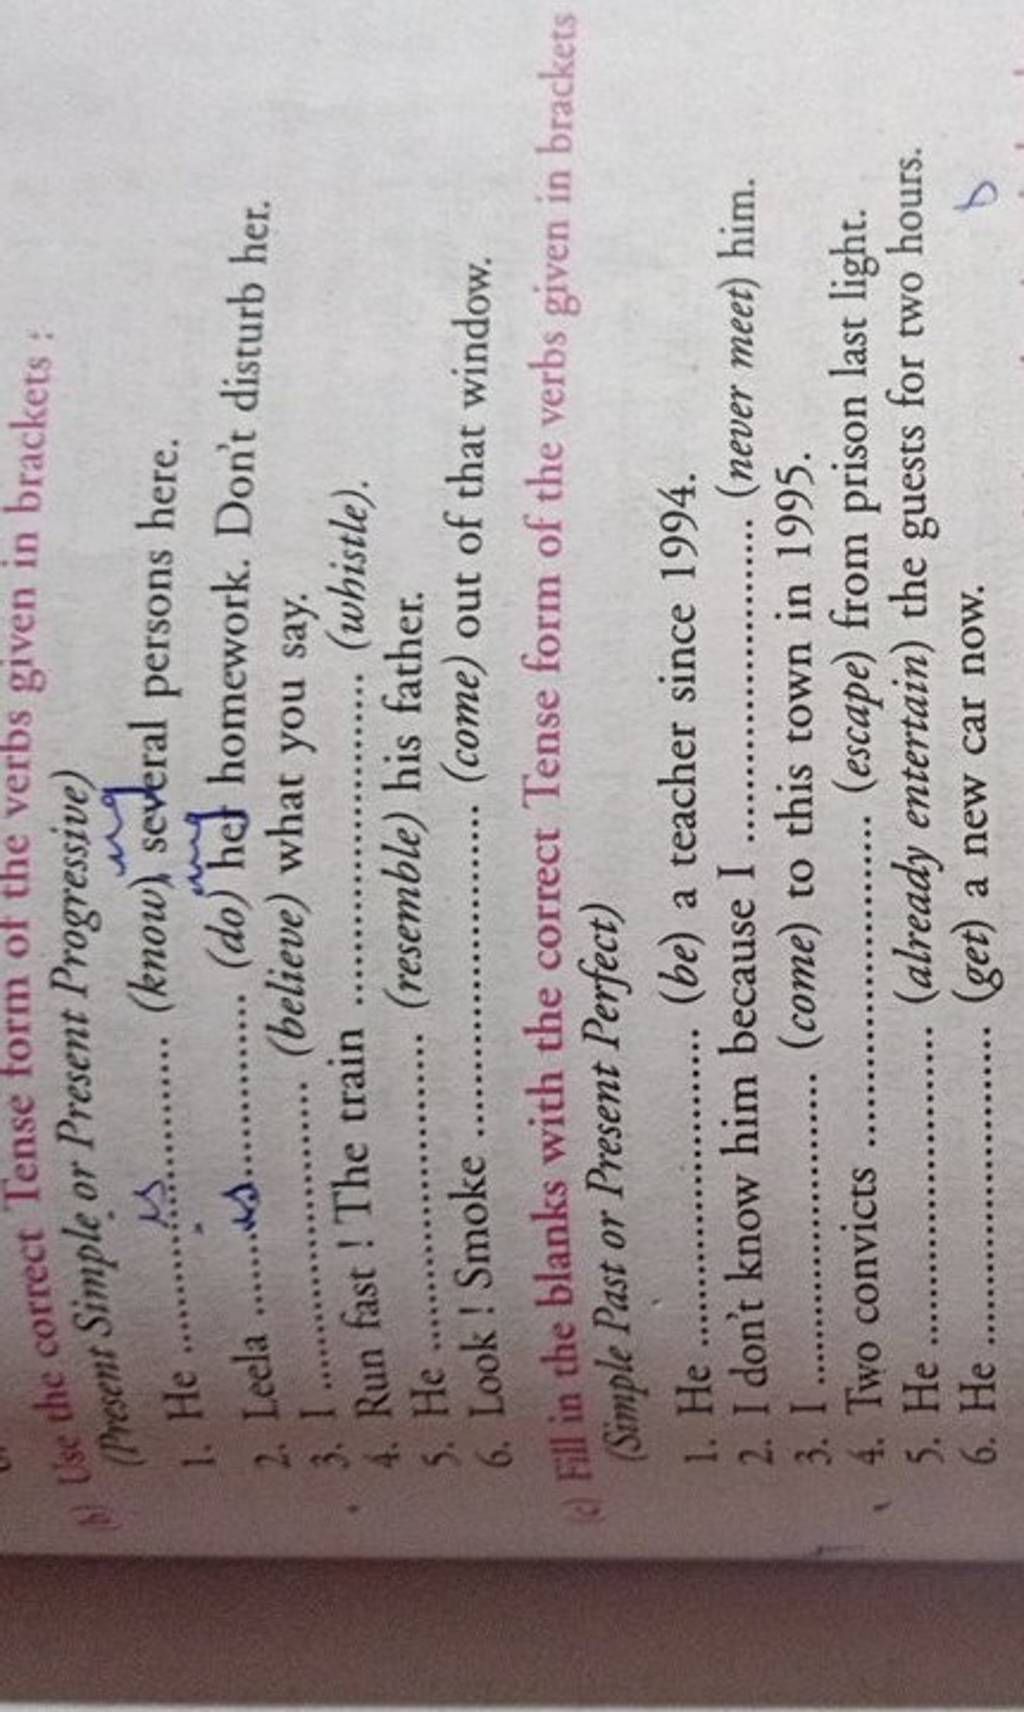 (b) Use the correct Tense form of the verbs given in brackets :
(Present Simple or Present Progressive)
1. He .......is.......... (know)ing several persons here.
2. Leela .......is.......... (do)ing her homework. Don't disturb her.
3. I .......................... (believe) what you say.
4. Run fast ! The train .......................... (whistle).
5. He .......................... (resemble) his father.
6. Look ! Smoke .......................... (come) out of that window.
(c) Fill in the blanks with the correct Tense form of the verbs given in brackets
(Simple Past or Present Perfect)
1. He .......................... (be) a teacher since 1994.
2. I don't know him because I .......................... (never meet) him.
3. I .......................... (come) to this town in 1995.
4. Two convicts .......................... (escape) from prison last light.
5. He .......................... (already entertain) the guests for two hours.
6. He .......................... (get) a new car now.